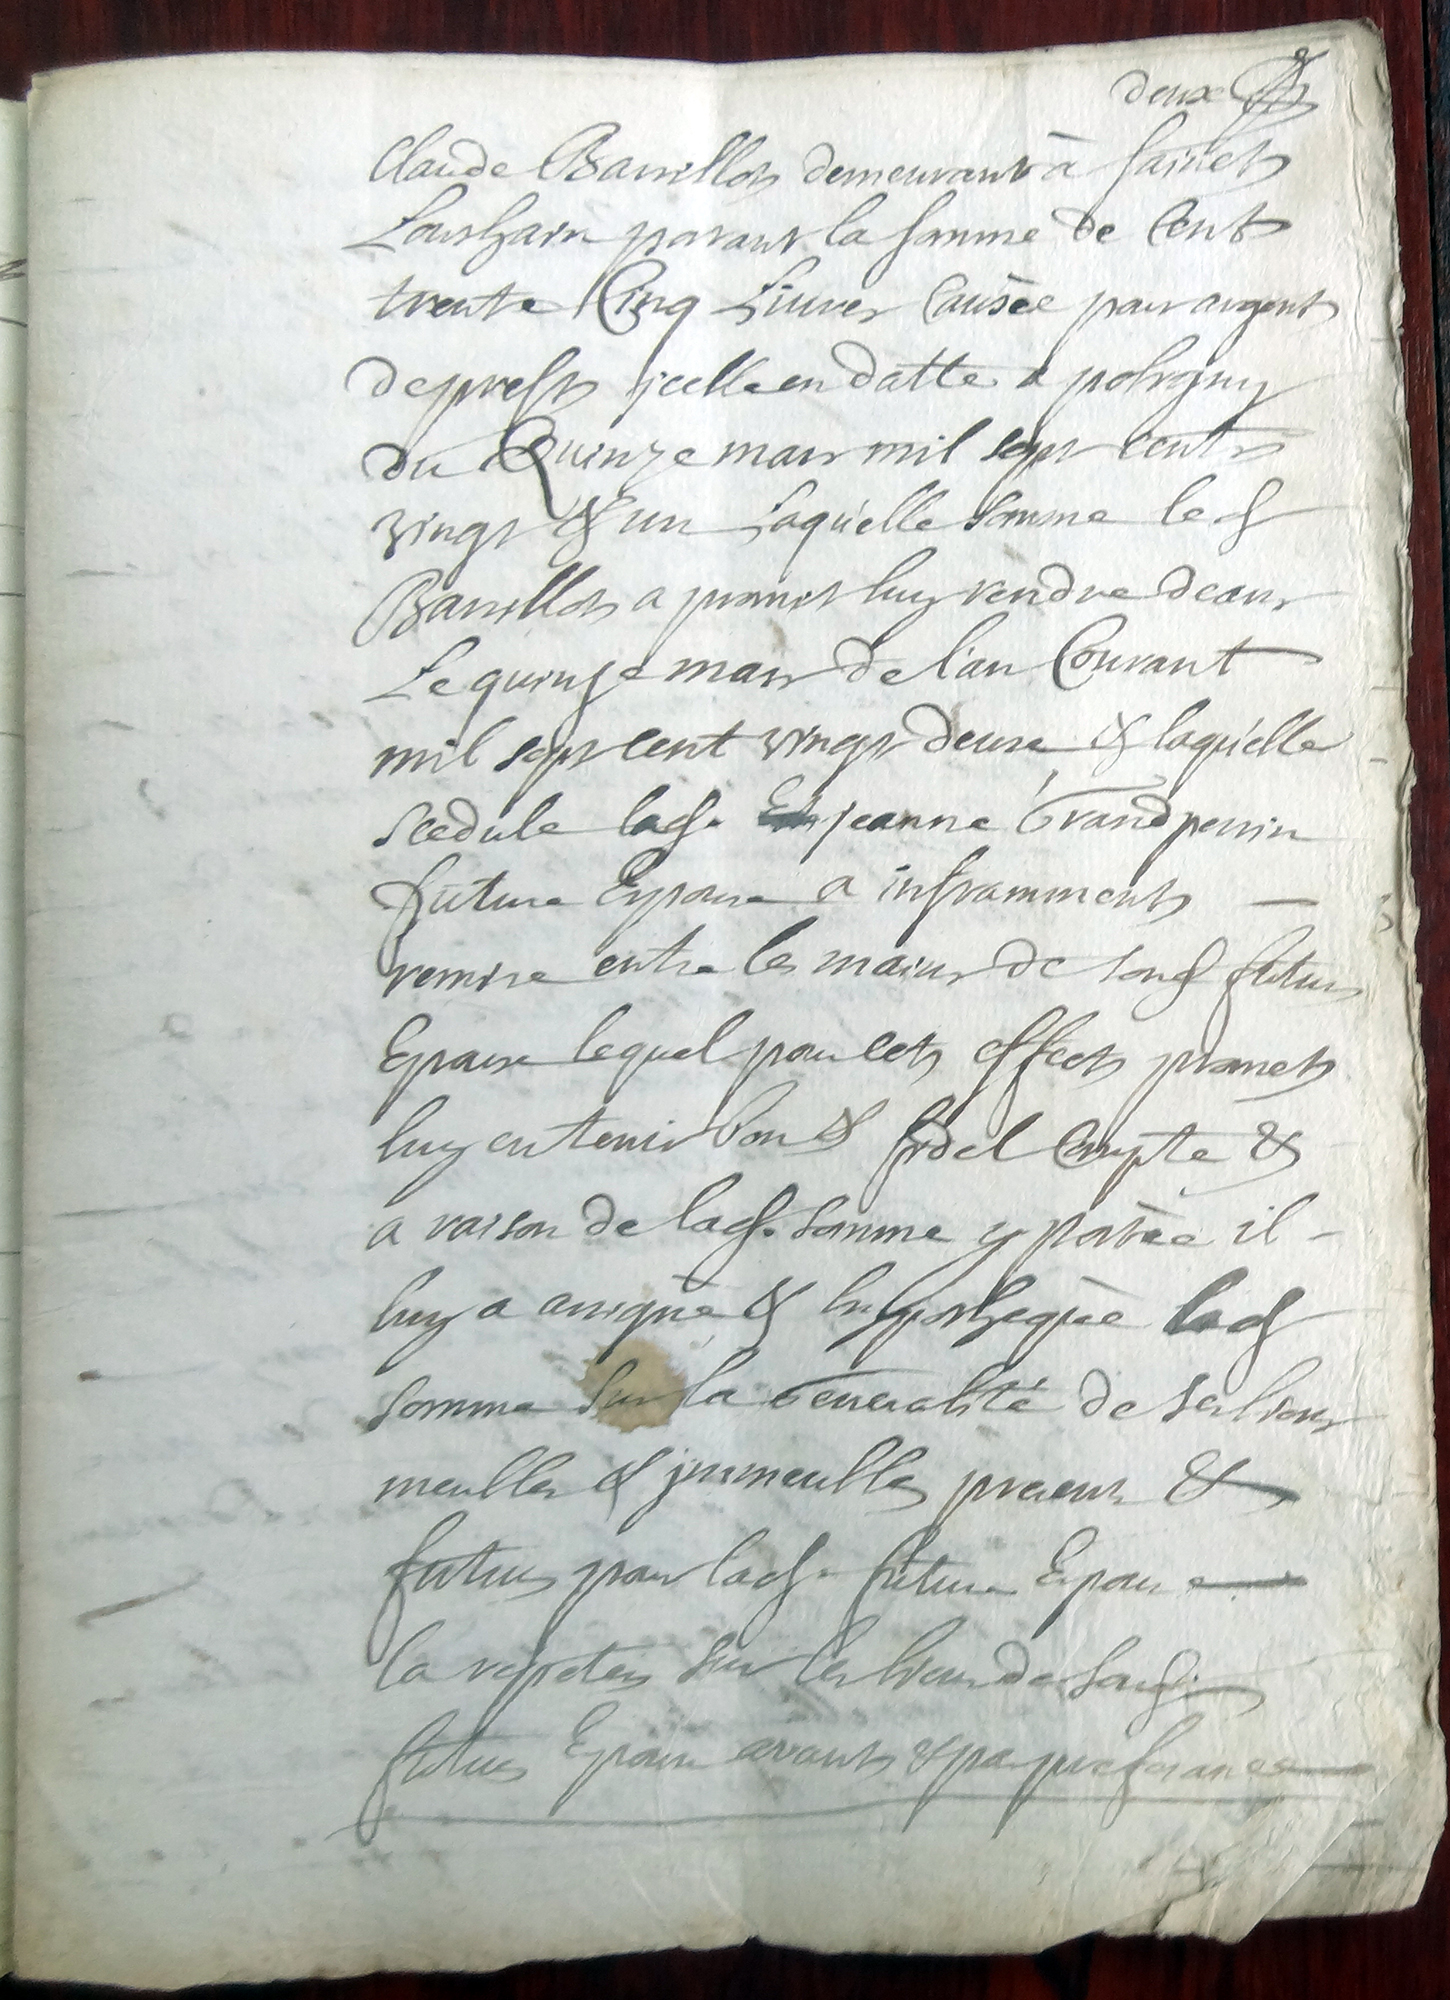 deux
Claude Barrillot demeurant à sainct
Louthain portant la somme de Cent
trente Cinq Livres Causée pour argent
de prest jcelle en datte a poligny
du Quinze mars mil sept cents
vingt & un Laquelle somme led
Barrillot a promis luy rendre dans
Le quinze mars de l'an Courant
mil sept cent vingt deux & laquelle
scedule lad. jeanne Grandperrin
future Epouse a
remise entre les mains de sond futur
Epoux lequel pour cet effect promet
luy en tenir bon & fidel Compte &
a raison de lad. somme y portée il
luy a assigné & hypothequé lad
somme sur la Generalité de ses biens
meubles & jmmeubles presents &
futurs pour lad. future Epouse
la repeter sur les biens de sond.
futur Epoux avant & par preferance